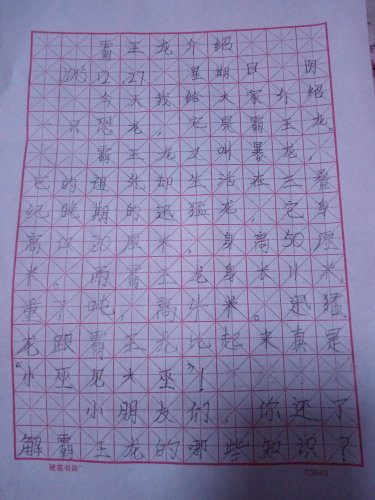 霸王龙介绍
2015.12.27 星期日 阴
今天我给大家介绍
一只恐龙，它是霸王龙。
霸王龙又叫暴龙，
它的祖先却生活在三叠
纪晚期的迅猛龙，它身
高仅30厘米，身高50厘
米。而霸王龙身长11米，
重7吨，高4米。迅猛
龙跟霸王龙比起来真是
“小巫见大巫”！
小朋友们，你还了
解霸王龙的哪些知识？
硬笔书法 03040